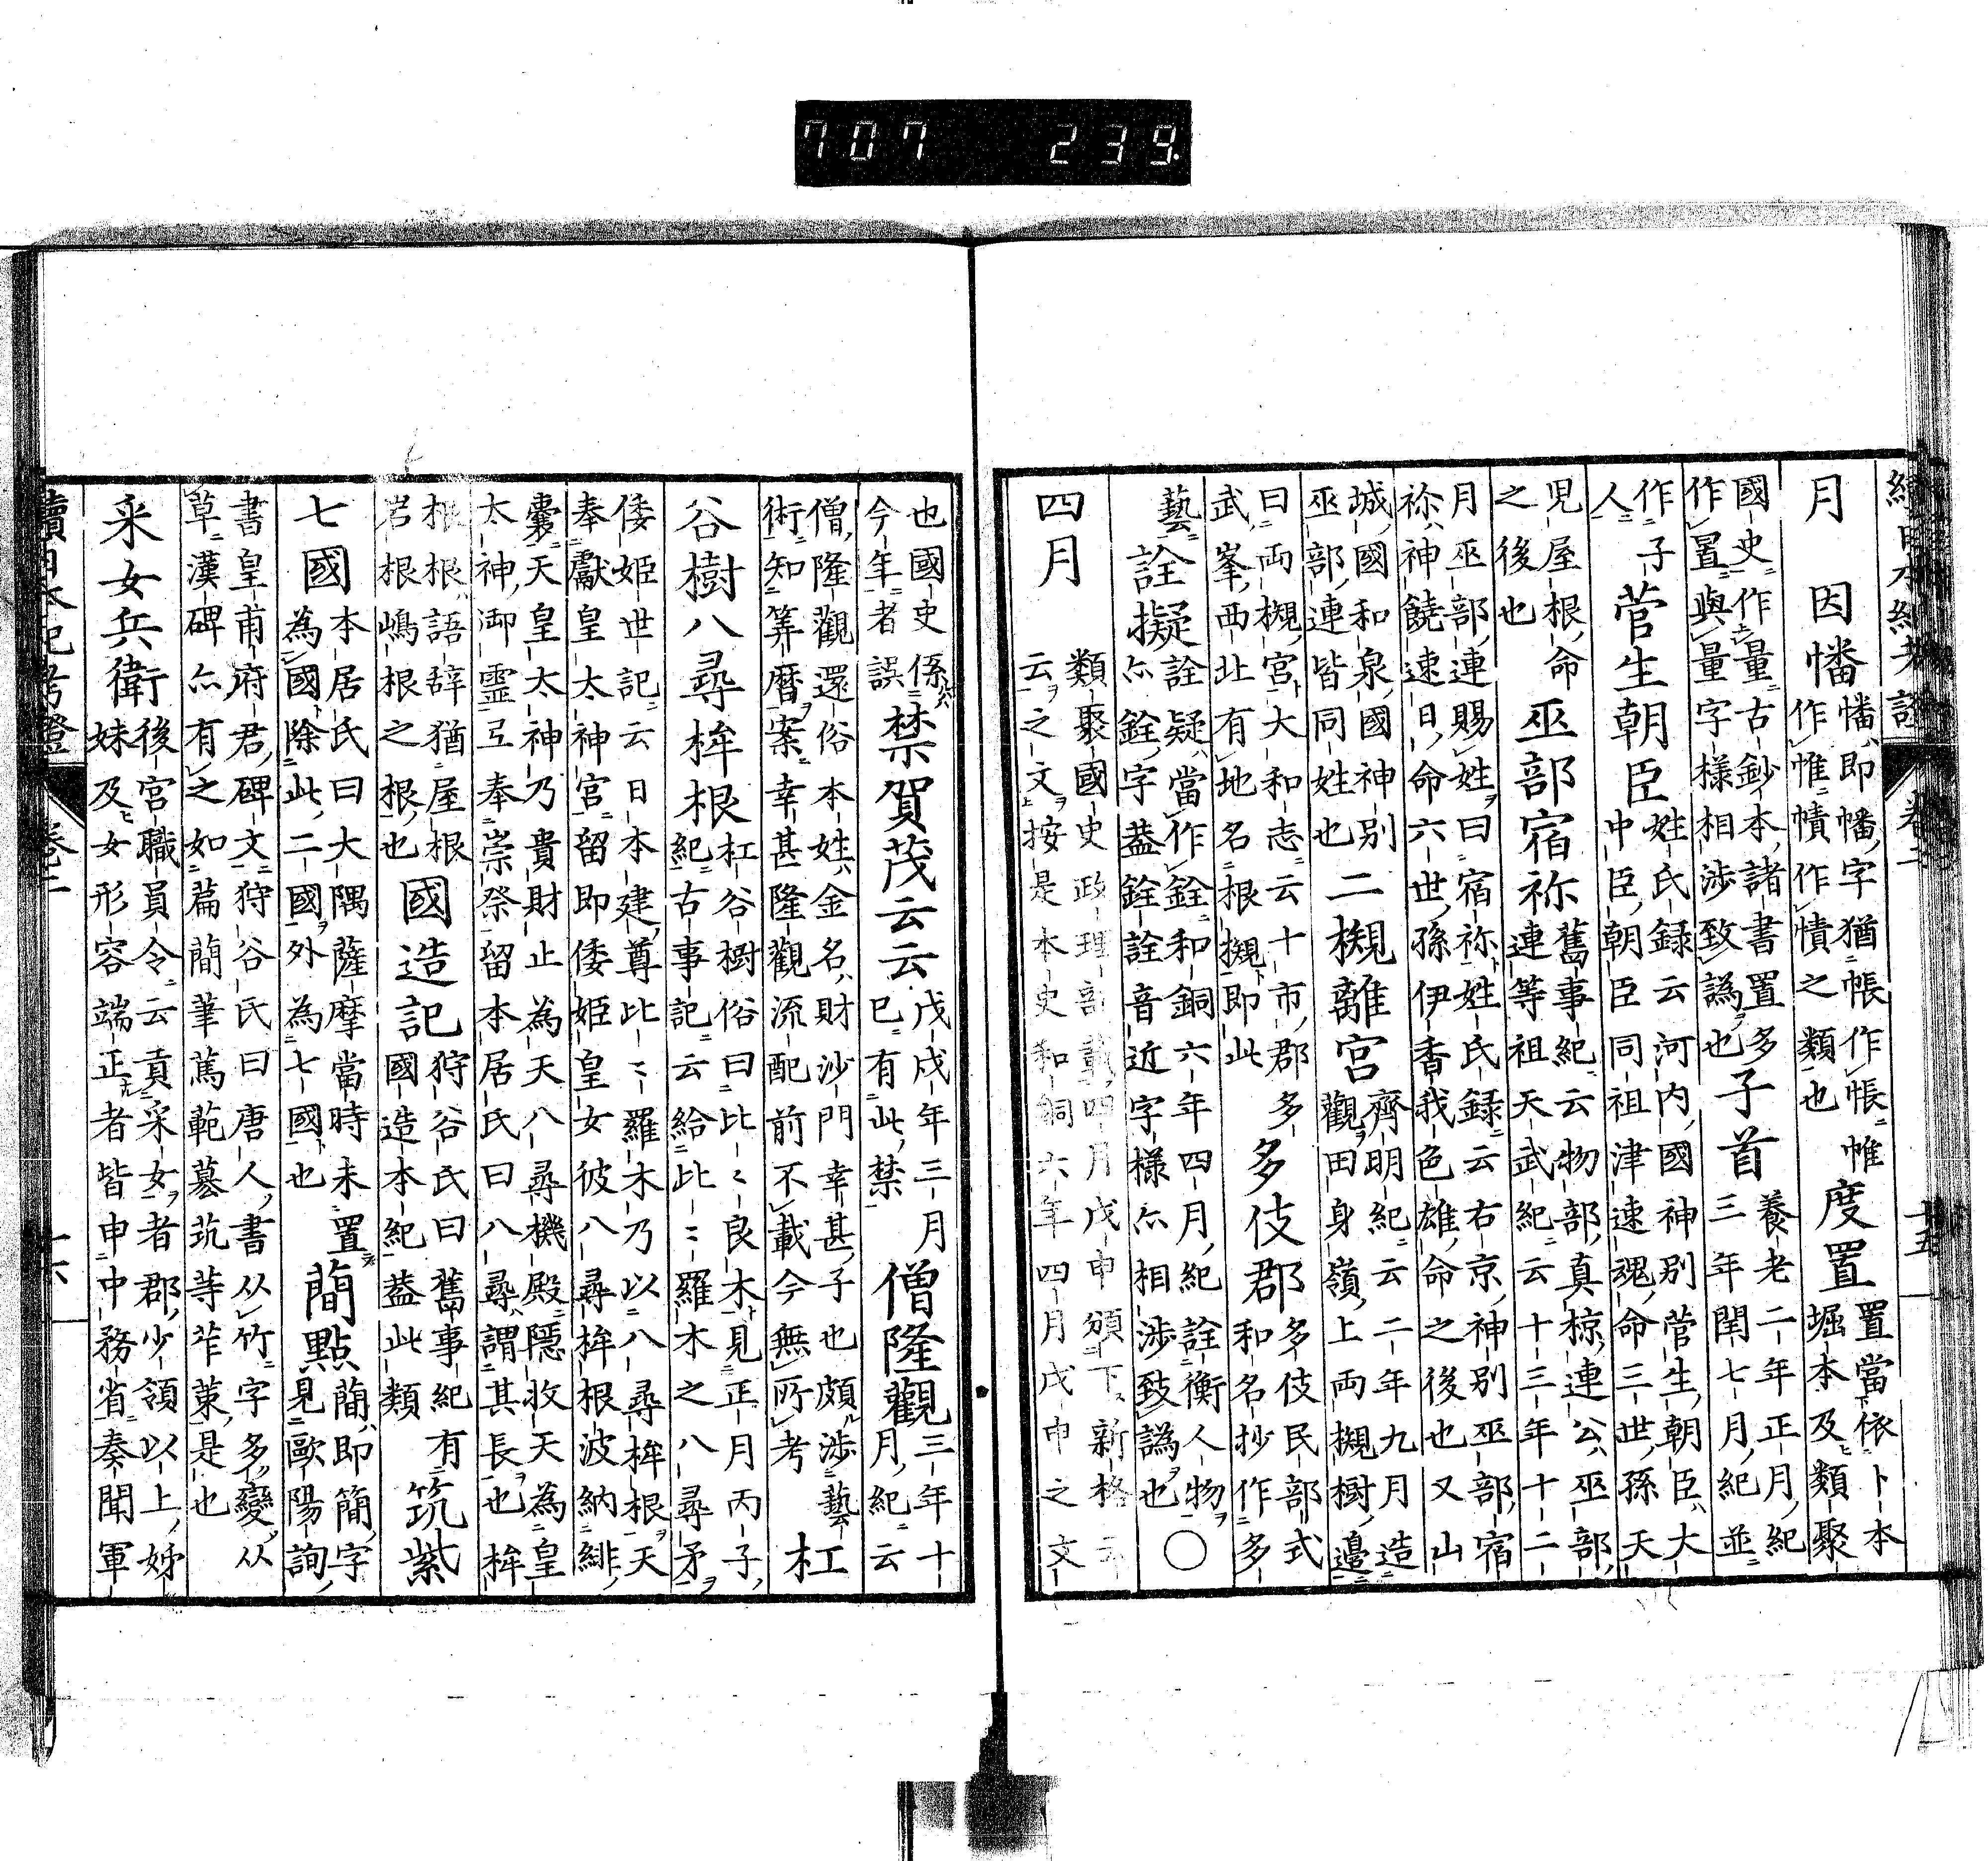 續日本紀考證 卷二 十五
月
因幡
幡即幡字猶帳作帳帷
作帷幘作憤之類也
度置
置當依卜本
堀本及類聚
國史作量古鈔本諸書置多
作置與量字様相渉致譌也
子首
養老二年正月紀
三年閏七月紀並
作子
人
菅生朝臣
姓氏録云河内國神別菅生朝臣大
中臣朝臣同祖津速魂命三世孫天
児屋根命
之後也
巫部宿祢
舊事紀云物部真椋連公巫部
連等祖天武紀云十三年十二
月巫部連賜姓曰宿祢姓氏録云右京神別巫部宿
祢神饒速日命六世孫伊香我色雄命之後也又山
城國和泉國神別
巫部連皆同姓也
二槻離宮
齊明紀云二年九月造
觀田身嶺上両槻樹邉
曰両槻宮大和志云十市郡多
武峯西北有地名根槻即此
多伎郡
多伎民部式
和名抄作多
藝
詮擬
詮疑當作銓和銅六年四月紀詮衡人物
亦銓字蓋銓詮音近字様亦相渉致譌也
○
四月
類聚國史政理部載四月戊申頒下新格云
云之文按是本史和銅六年四月戊申之文
也國史係
今年者誤
禁賀茂云云
戊戍年三月
已有此禁
僧隆觀
三年十
月紀云
僧隆觀還俗本姓金名財沙門幸甚子也頗渉藝
術知筭曆案幸甚隆觀流配前不載今無所考
杠
谷樹八尋桙根
杠谷樹俗曰比比良木見正月丙子
紀古事記云給比比羅木之八尋矛
倭姫世記云日本建尊比比羅木乃以八尋桙根天
奉獻皇太神宮留即倭姫皇女彼八尋桙根波納緋
嚢天皇太神乃貴財止為天八尋機殿隱收天為皇
太神御靈弖奉崇祭留本居氏曰八尋謂其長也桙
根根語辞猶屋根
岩根嶋根之根也
國造記
狩谷氏曰舊事紀有
國造本紀蓋此類
筑紫
七國
本居氏曰大隅薩摩當時未置
為國除此二國外為七國也
蕳點
蕳即簡字
見歐陽詢
書皇甫府君碑文狩谷氏曰唐人書从竹字多變从
草漢碑亦有之如篇簡筆篤範墓茿等莋菄是也
采女兵衛
後宮職員令云貢采女者郡少領以上姊
妹及女形容端正者皆申中務省奏聞軍
續日本紀考證 卷二 十六
707 239.